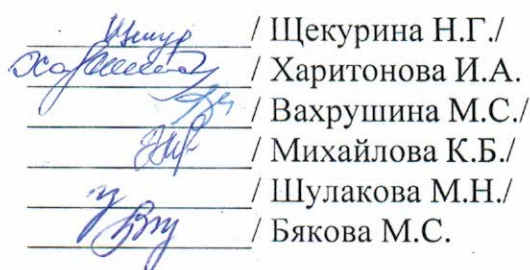 / Щекурина Н.Г./
/ Харитонова И.А.
/ Вахрушина М.С./
/ Михайлова К.Б./
/ Шулакова М.Н./
/ Бякова М.С.